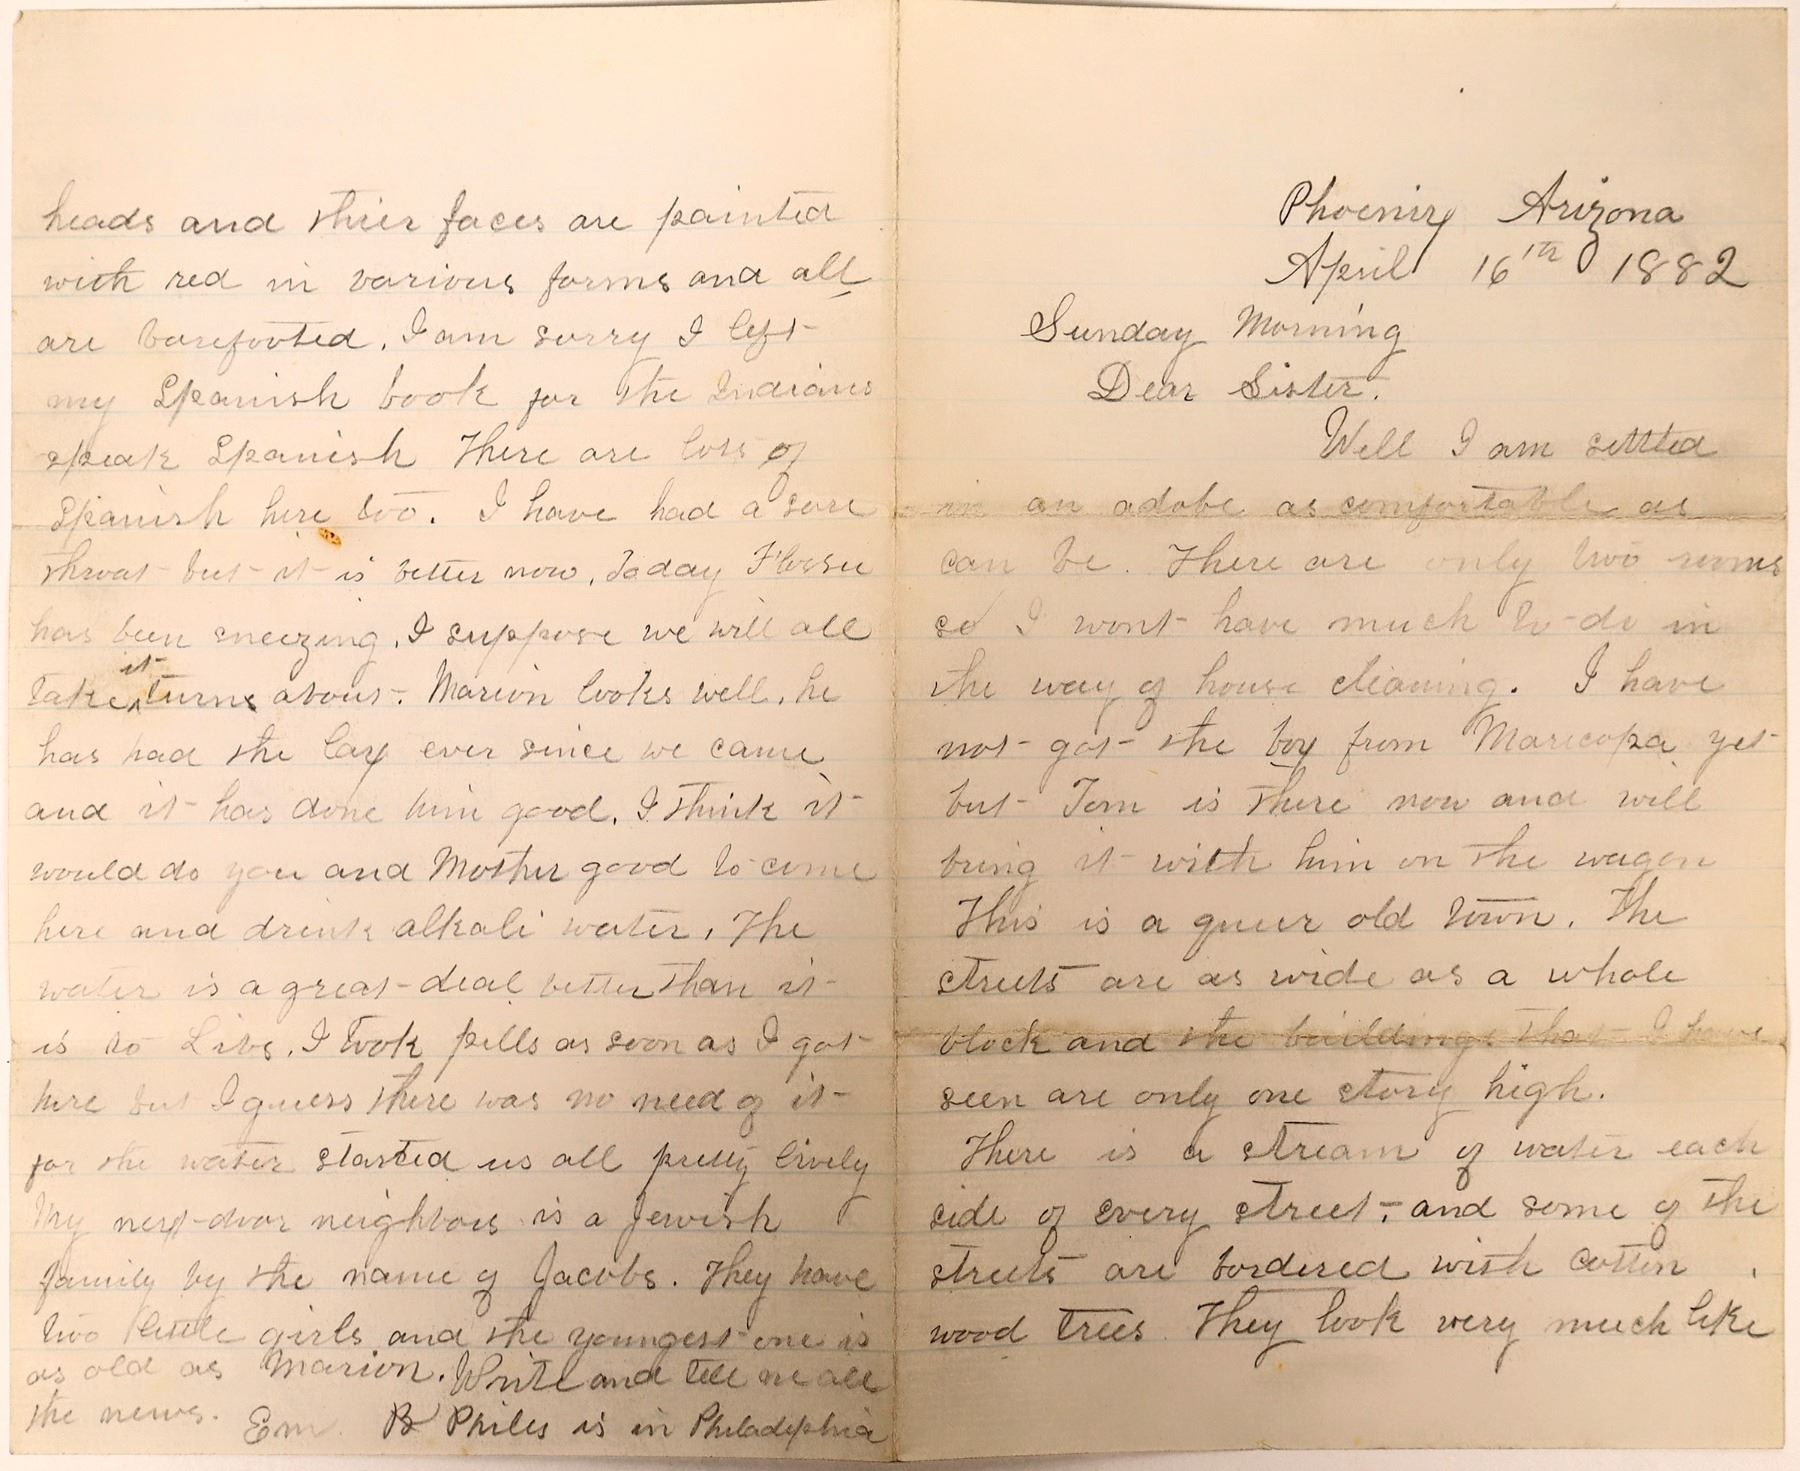 Phoenix Arizona
April 16th 1882
Sunday Morning
Dear Sister.
Well I am settled
in an adobe as comfortable as
can be. There are only two rooms
so I wont have much to do in
the way of house cleaning. I have
not got the boy from Maricopa yet
but Tom is there now and will
bring it with him on the wagon
This is a queer old town. The
streets are as wide as a whole
block and the buildings that I have
seen are only one story high.
There is a stream of water each
side of every street, and some of the
streets are bordered with cotten
wood trees They look very much like
heads and thier faces are painted
with red in various forms and all
are barefooted. I am sorry I left
my Spanish book for the Indians
speak Spanish There are lots of
Spanish here too. I have had a sore
throat but it is better now. Today Flossie
has been sneezing. I suppose we will all
take it turns about. Marion looks well. he
has had the lax ever since we came
and it has done him good. I think it
would do you and Mother good to come
here and drink alkali water. The
water is a great deal better than it
is to . I took pills as soon as I got
here but I guess there was no need of it
for the water started us all pretty lively
My next door neighbors is a Jewish
family by the name of Jacobs. They have
two little girls and the youngest one is
as old as Marion. Write and tell me all
the news. Em. B Philes is in Philadelphia